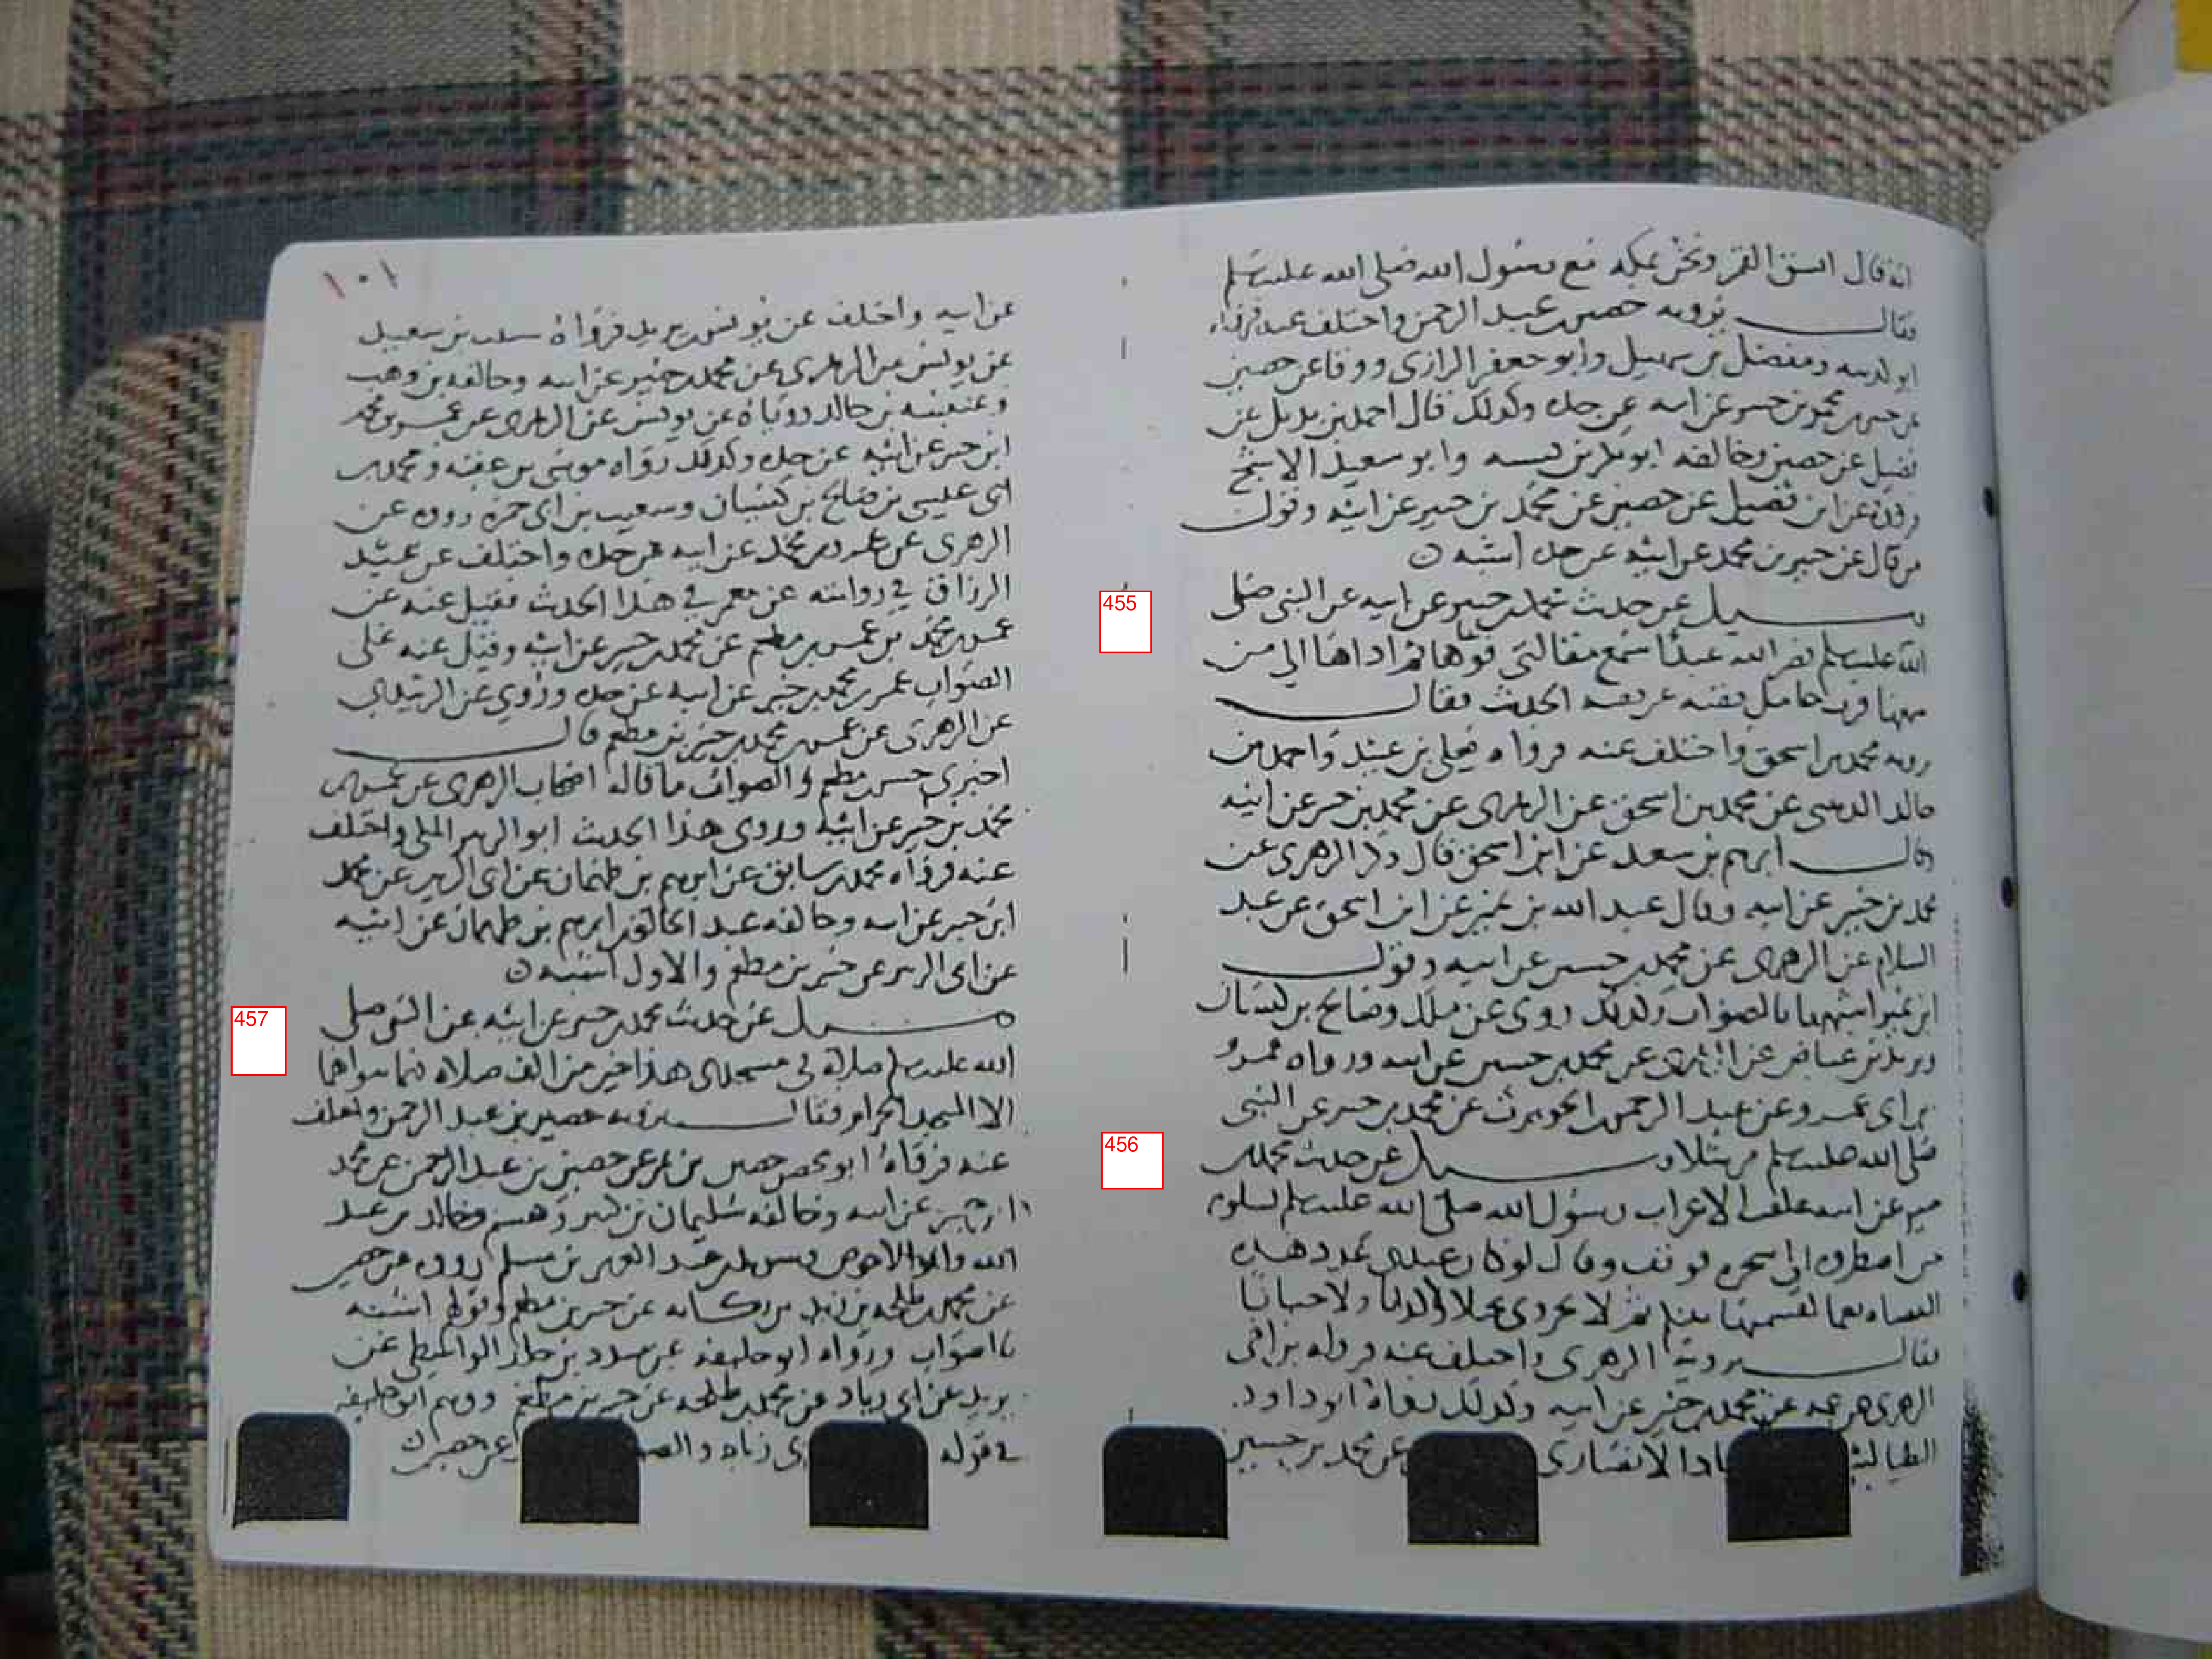 انه قال انشق القمر ونحن بمكه مع رسول الله صلى الله عليه وسلم
فقال يرويه حصين بن عبد الرحمن واختلف عنه فرواه
ابو كدينه ومفضل بن وابو جعفر الرازى وورقا عن حصين
عن جبير بن محمد بن جبير عن ابيه عن جده وكذلك قال احمد بن بديل عن
فضيل عن حصين وخالفه ابو بكر بن شيبه وابو سعيد الاشج
عن ابن فضيل عن حصين عن محمد بن جبير عن ابيه وقول
من قال عن جبير بن محمد عن ابيه عن جده اشبه
وسيل عن حديث محمد بن جبير عن ابيه عن النبي صلى
الله عليه وسلم نضر الله عبدا سمع مقالتى فوعاها ثم اداها الى من
فرب حامل فقه غير فقيه الحديث فقال
يرويه محمد بن اسحق واختلف عنه فرواه يعلى بن عبيد واحمد بن
خالد الوهبى عن محمد بن اسحق عن الزهرى عن محمد بن جبير عن ابيه
وقال ابرهيم بن سعد عن ابن اسحق قال ذكر الزهرى عن
محمد بن جبير عن ابيه وقال عبد الله بن نمير عن ابن اسحق عن عبد
السلام عن الزهرى عن محمد بن جبير عن ابيه وقول
ابن نمير اشبهها بالصواب وكذلك روى عن ملك وصالح بن كيسان
عن الزهرى عن محمد بن جبير عن ابيه ورواه عمرو
بن ابى عمرو عن عبد الرحمن بن الحويرث عن محمد بن جبير عن النبى
صلى الله عليه وسلم مرسلا وسيل عن حديث محمد بن
جبير عن ابيه علقت الاعراب رسول الله صلى الله عليه وسلم يسلوه
حتى اضطروه الى سمره فوقف وقال لو كان عندى عدد هذه
العضاه نعما لقسمتها بينكم ثم لا تجدوى بخيلا ولا كذابا ولا جبانا
فقال يرويه الزهرى واختلف عنه فرواه بن اخى
الزهرى عن عمه عن محمد بن جبير عن ابيه وكذلك رواه ابو داود
الطيالسى الانصارى عن محمد بن جبير
١٠١
عن ابيه واختلف عن يونس بن يزيد فرواه شبيب بن سعيد
عن يونس عن الزهرى عن محمد بن جبير عن ابيه وخالفه بن وهب
وعنبسه بن خالد روياه عن يونس عن الزهرى عن عمر بن محمد
ابن جبير عن ابيه عن جده وكذلك رواه موسى بن عقبه ومحمد بن
ابى عتيق بن صالح بن كيسان وشعيب بن ابى حمزه رووه عن
الزهرى عن عمر بن محمد عن ابيه عن جده واختلف عن عبد
الرزاق في روايته عن معمر في هذا الحديث فقيل عنه عن
عمر بن محمد بن عمرو بن مطعم عن محمد بن جبير عن ابيه وقيل عنه على
الصواب عمر بن محمد بن جبير عن ابيه عن جده وروي عن الزبيدي
عن الزهرى عن عمر بن محمد بن جبير بن مطعم قال
اخبرنى جبير بن مطعم والصواب ما قاله اصحاب الزهرى عن عمر بن
محمد بن جبير عن ابيه وروى هذا الحديث ابو الزبير المكى واختلف
عنه فرواه محمد بن سابق عن ابرهيم بن طهمان عن ابى الزبير عن محمد
ابن جبير عن ابيه وخالفه عبد الخالق بن ابرهيم بن طهمان عن ابيه
عن ابى الزبير عن جبير بن مطعم والاول اشبه
وسيل عن حديث محمد بن جبير عن ابيه عن النبي صلى
الله عليه وسلم صلاة فى مسجدى هذا خير من الف صلاه فيما سواها
الا المسجد الحرام فقال يرويه حصين بن عبد الرحمن واختلف
عنه فرواه ابو محصن حصين بن نمير عن حصين بن عبد الرحمن عن محمد
ابن جبير عن ابيه وخالفه سليمان بن كثير وهشيم وخالد بن عبد
الله وابو الاحوص وعبد العزيز بن مسلم رووه عن حصين
عن محمد بن طلحه بن يزيد بن ركانه عن جبير بن مطعم وقولهم اشبه
بالصواب ورواه ابو خليفه عن مسدد بن خالد الواسطى عن
يزيد بن ابى زياد عن محمد بن طلحه عن جبير بن مطعم ووهم ابو خليفه
في قوله زياد عن حصين
455
456
457